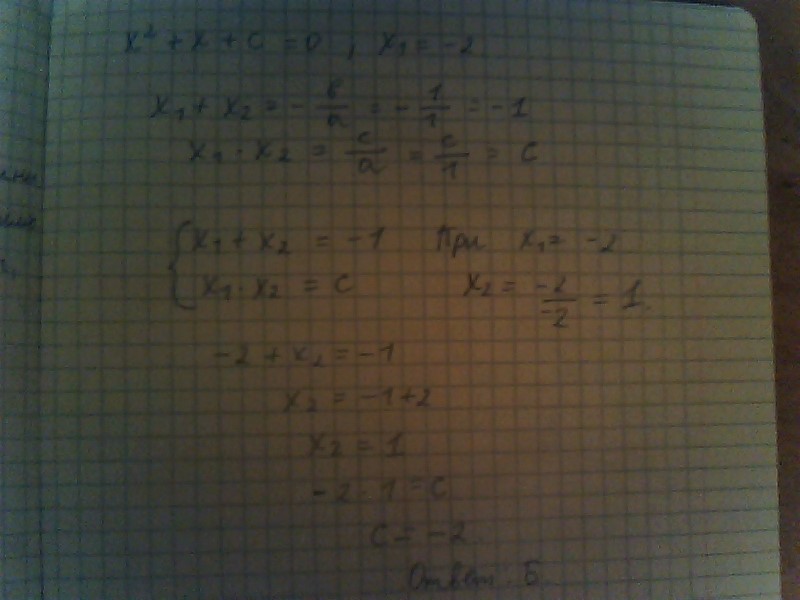 x² + x + c = 0 , x₁ = -2
x₁ + x₂ = - в/a = - 1/1 = -1
x₁ · x₂ = c/a = c/1 = c
{ x₁ + x₂ = -1
x₁ · x₂ = c
При x₁ = -2
x₂ = -2/-2 = 1.
-2 + x₂ = -1
x₂ = -1+2
x₂ = 1
-2 · 1 = c
c = -2.
Ответ: Б.